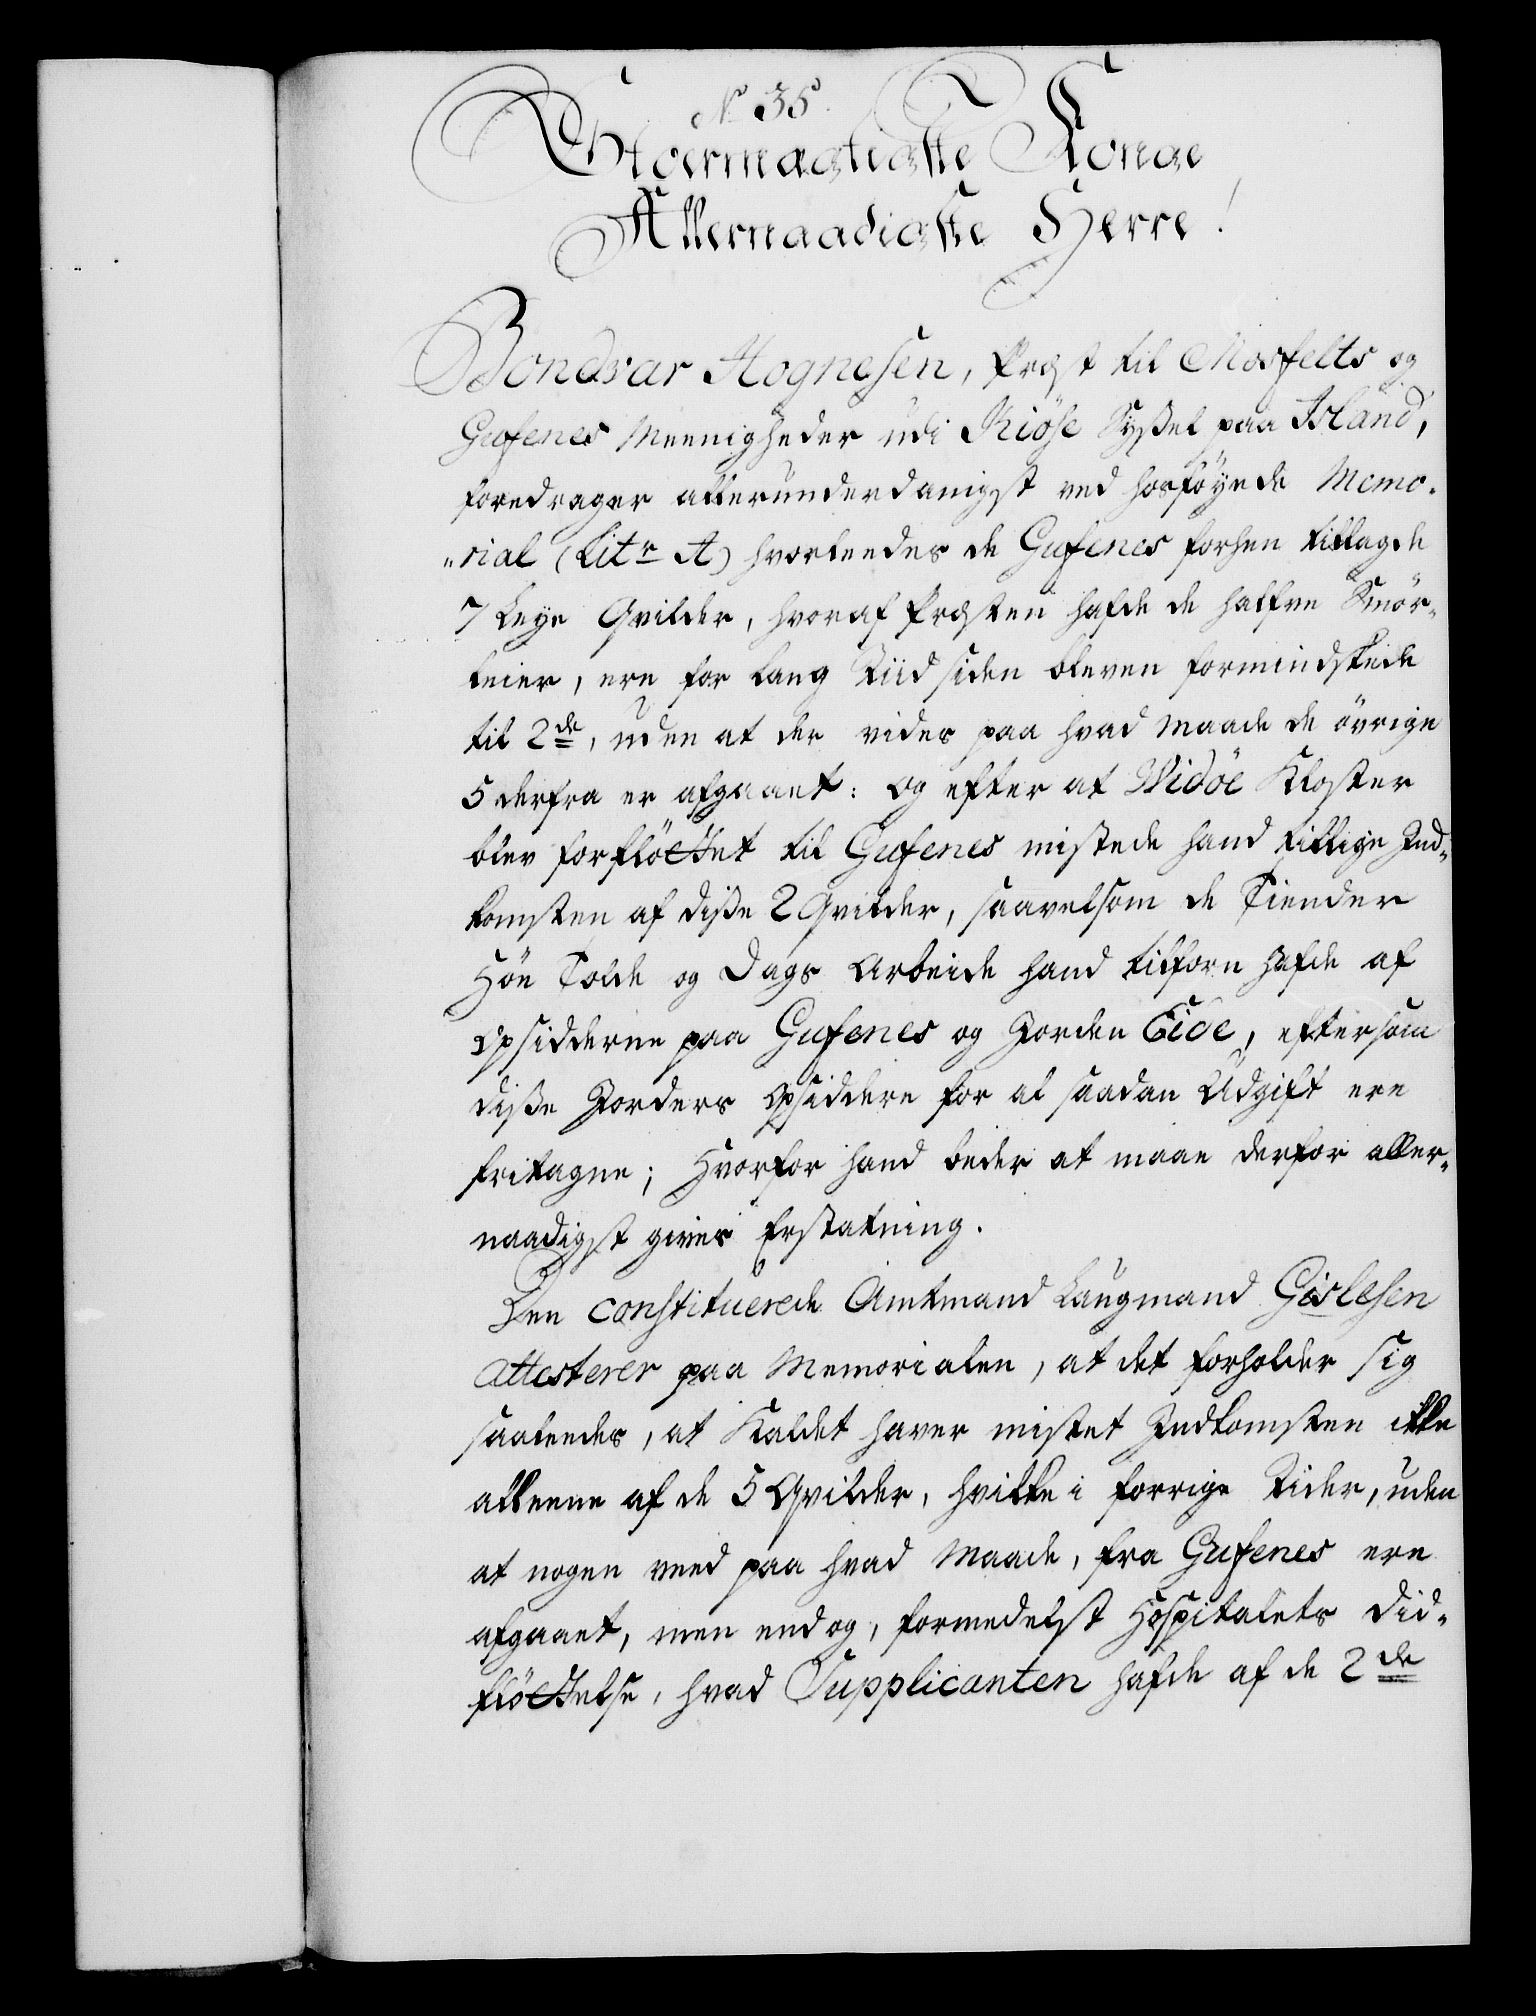 N 35.
Stoermægtigste Konge
Allernaadigste Herre!
Bondvar Hognesen, Præst til Mosfelts og
Gufenes Meenigheder udi Kiöse Syßel paa Island,
foredrager allerunderdanigst ved hosföyede Memo-
"rial (Litr A) hvorleedes de Gufenes forhen tillagde
7 Leye Qvilder, hvoraf Præsten hafde de halfve Smör-
leier, ere for lang Tiid siden bleven formindskede
til 2de, uden at der vides paa hvad Maade de övrige
5 derfra er afgaaet: Og efter at Widöe Kloster
blev forflöttet til Gufenes mistede hand tillige Ind-
komsten af diße 2 Qvilder, saavelsom de Tiender
Höe Tolde og Dags Arbeide hand tilforn hafde af
Opsidderne paa Gufenes og Jorden Eide, eftersom
diße Jorders Opsiddere for al saadan Udgift ere
fritagne; Hvorfor hand beder at maae derfor aller-
naadigst gives Erstatning.
Den constituerede Amtmand Laugmand Gislesen
attesterer paa Memorialen, at det forholder sig
saaleedes, at Kaldet haver mistet Indkomsten ikke
alleene af de 5 Qvilder, hvilke i forrige Tider, uden
at nogen veed paa hvad Maade, fra Gufenes ere
afgaaet, men endog, formedelst Hospitalets did-
flöttelse, hvad Supplicanten hafde af de 2de